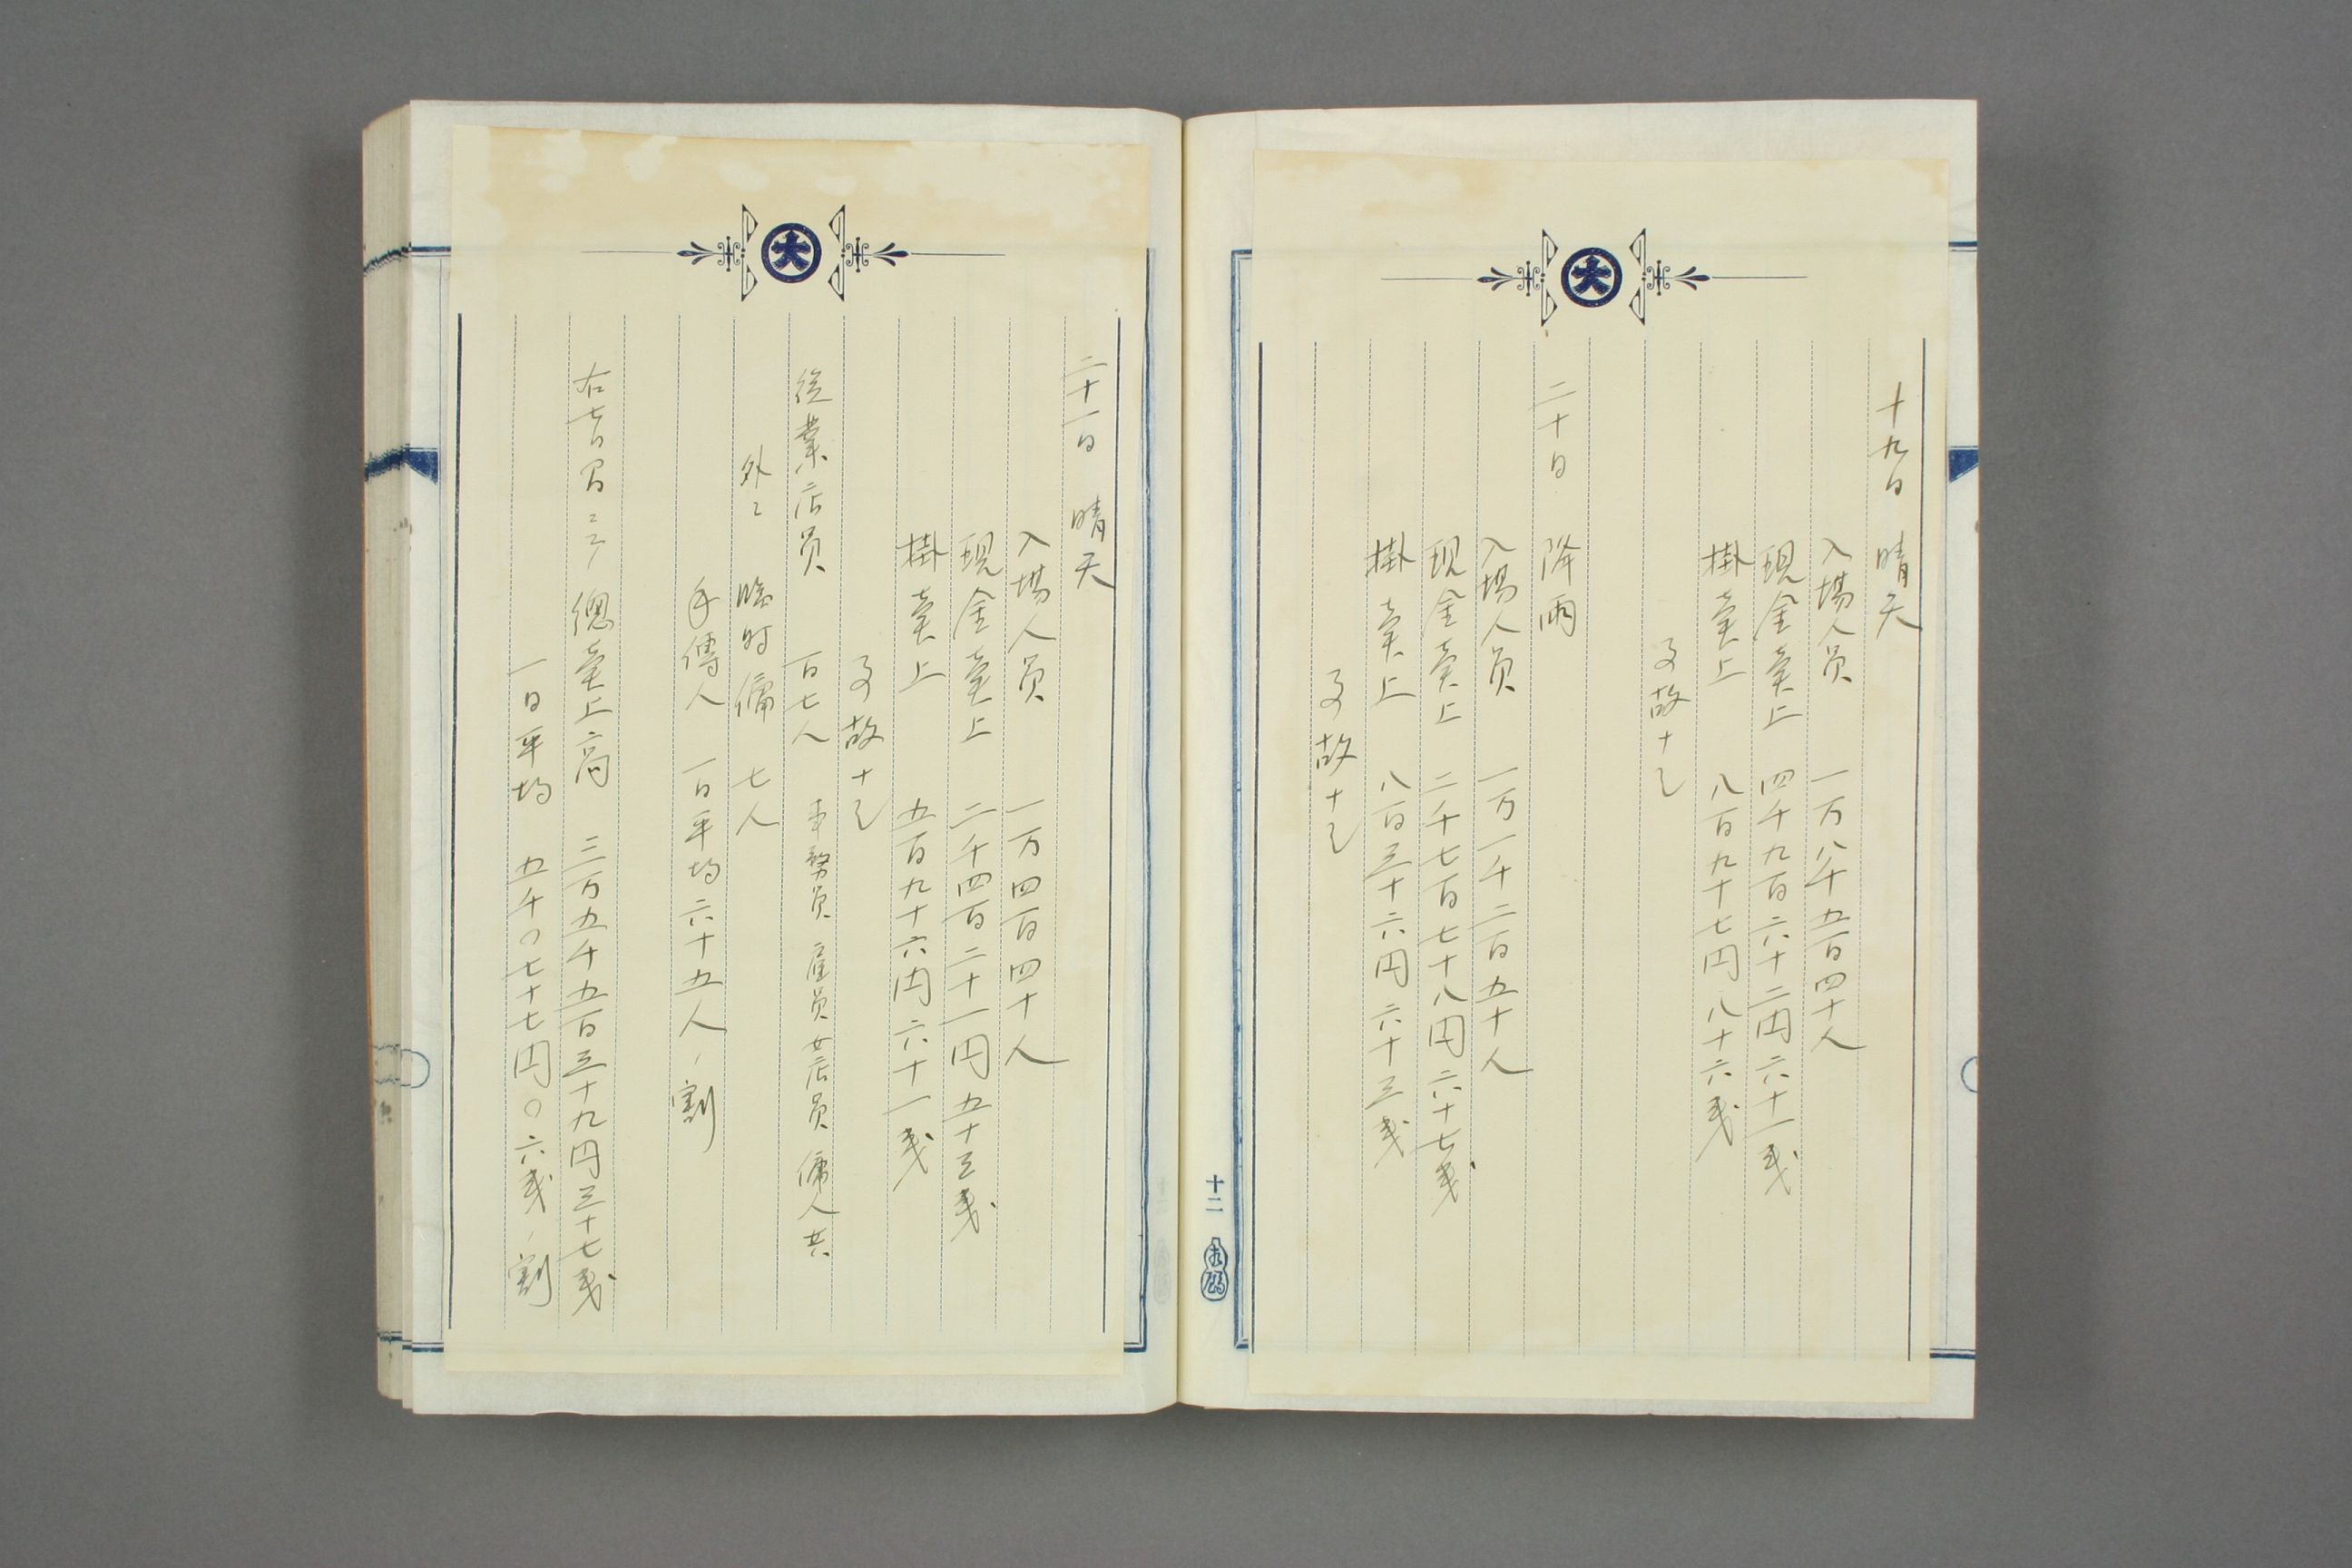 十九日 晴天
入場人員 一万八千五百四十人
現金売上 四千九百六十二円六十一戋
掛売上 八百九十七円八十六戋
事故ナシ
二十日 降雨
入場人員 一万一千二百五十人
現金売上 二千七百七十八円六十七戋
掛売上 八百三十六円六十三戋
事故ナシ
十二
大
二十一日 晴天
入場人員 一万四百四十人
現金売上 二千四百二十一円五十三戋
掛売上 五百九十六円六十一戋
事故ナシ
従業店員 百七人 事務員 雇員 女店員 傭人共
外ニ 臨時傭 七人
手傳人 一日平均六十五人ノ割
右七日間ニテ 總売上高 三万五千五百三十九円三十七戋
一日平均 五千〇七十七円〇六戋ノ割
大